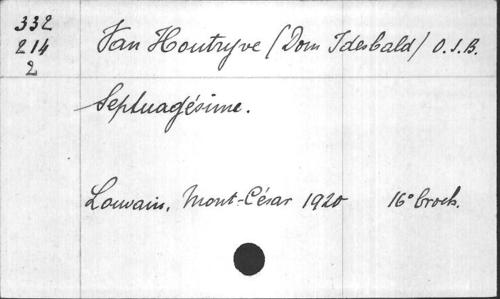 332
214
2
Van Houtryve (Dom Idesbald) O.S.B.
Septuagésime.
Louvain, Mont-César 1920 16° broch.